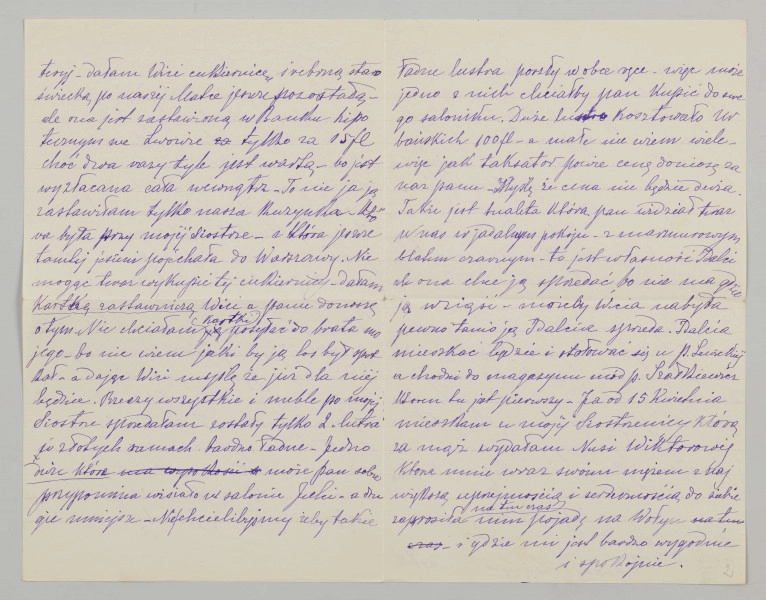 dałam Wici cukiernicę, srebrną staro
świecką, po naszej Matce jeszcze pozostałą –
ale ona jest zastawioną w Banku hipo
tecznym we Lwowie za tylko za 15 fl
choć dwa razy tyle jest wartą – bo jest
wyzłacana cała wewnątrz – To nie ja ją
zastawiłam tylko nasza Kuzynka – któ
ra była przy mojej Siostrze – a która jeszcze
tamtej jesieni pojechała do Warszawy. Nie
mogąc teraz wykupić tej cukiernicy – dałam
Kartkę zastawniczą Wici a panu donoszę
o tym. Nie chciałam kartki posyłać do brata mo
jego – bo nie wiem jaki by ją los był spot
kał – a dając Wici myślę że już dla niej
będzie. Rzeczy wszystkie i meble po mojej
Siostrze sprzedałam zostały tylko 2 lustra
w złotych ramach – bardzo ładne – Jedno
duże które może pan sobie
przypomina wisiało w salonie – a dru
gie mniejsze – Nie chcielibyśmy żeby takie
ładne lustra poszły w obce ręce – więc może
jedno z nich chciałby pan kupić do swe
go saloniku. Duże lustro kosztowało Ur
bańskich 100 fl – a małe nie wiem wiele –
więc jak taksator powie cenę doniosę za
raz panu – Myślę że cena nie będzie duża.
Także jest toaleta którą pan widział teraz
w nas w jadalnym pokoju – z marmurowym
blatem czarnym – to jest własność Balci
ale ona chce ją sprzedać bo nie ma gdzie
ją wziąść – możeby Wicia nabyła
pewno tanio ją Balcia sprzeda. Balcia
mieszkać będzie i stołować się u p.
a chodzi do magazynu mód p. Szałkiewicz
który tu jest pierwszy – Ja od 15 Kwietnia
mieszkam u mojej Siostrzenicy którą
za mąż wydałam Nusi Wiktorowej
która mnie wraz swoim mężem z naj
wyższą uprzejmością i serdecznością do siebie
zaprosiła na ten czas nim pojadę na Wołyń na ten
czas – i gdzie mi jest bardzo wygodnie
i spokojnie.